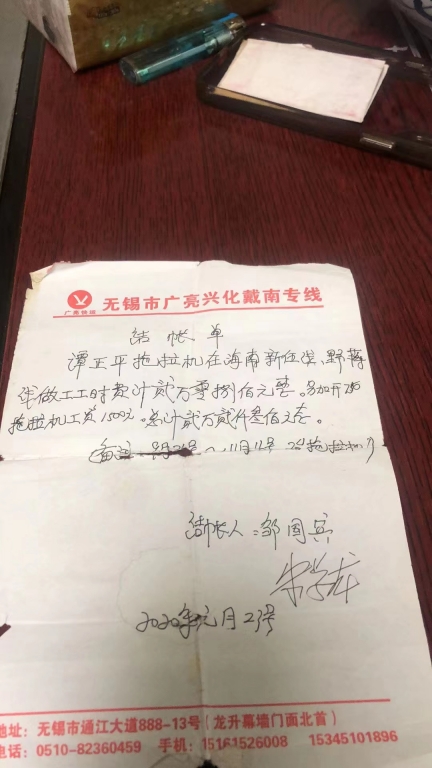 广亮物流
无锡市广亮兴化戴南专线
结帐单
谭正平拖拉机在海南新伍洪、野蒋
做工工时费计贰万零捌佰元整。另加开
拖拉机工资1500元。总计贰万贰仟叁佰元整。
备注: ~11月12号 拖拉机
结帐人:邹国兵
宋学龙
2020年元月23号
地址:无锡市通江大道888-13号(龙升幕墙门面北首)
电话:0510-82360459 手机:15161526008 15345101896